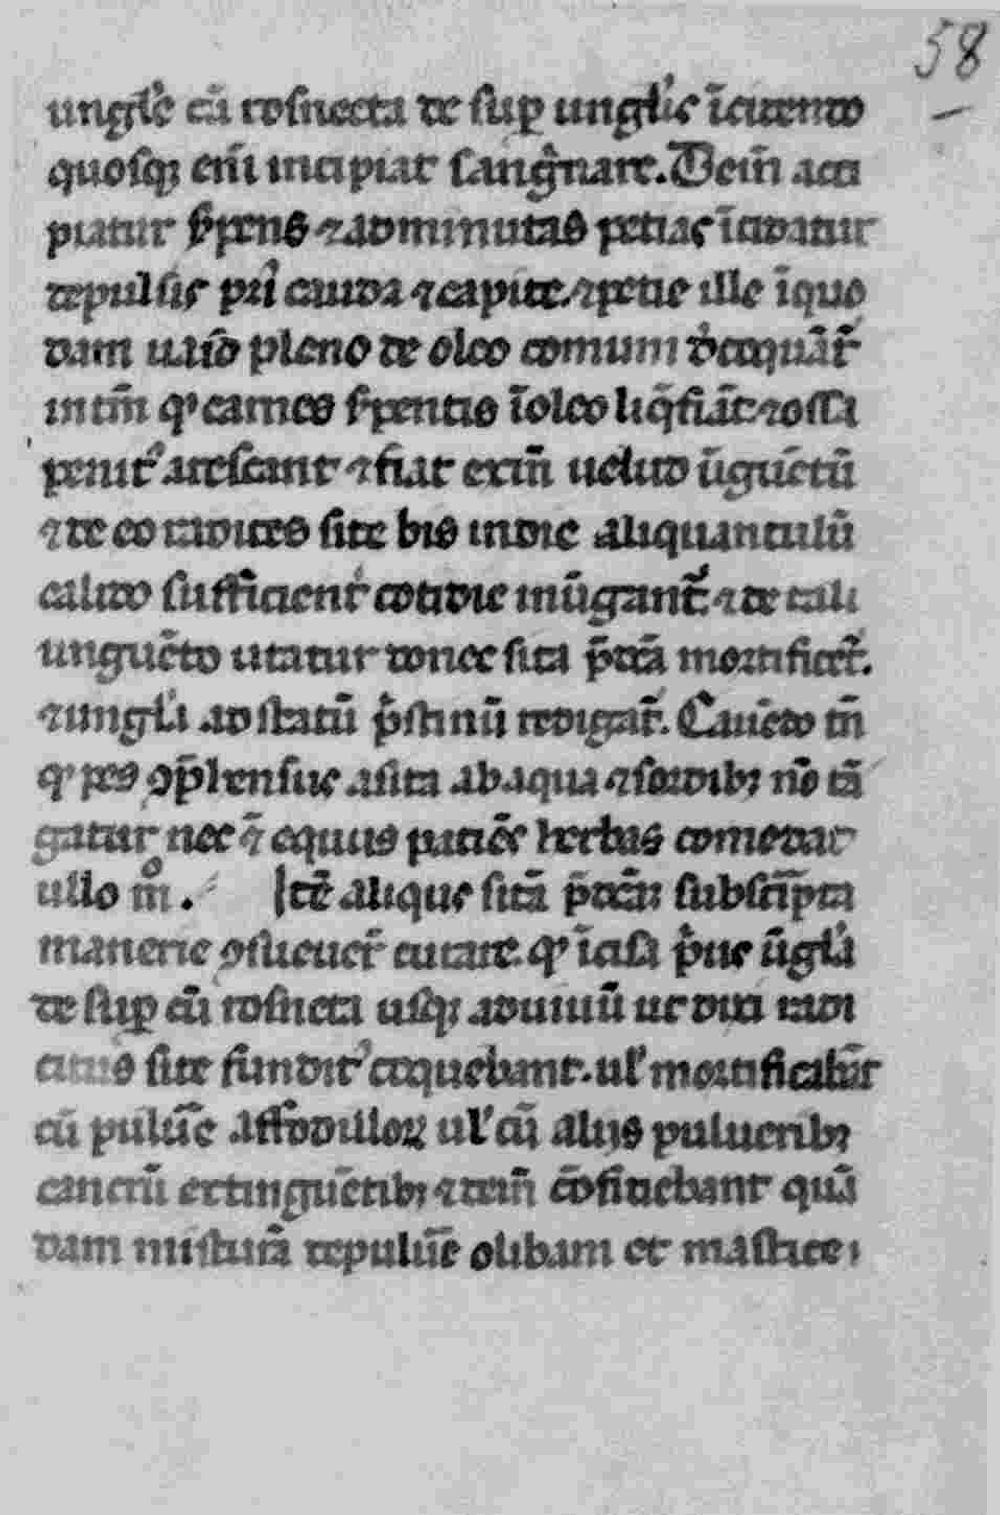 58
unglẽ cũ rosnecta de sup unglis ĩcidendo
quosq; em̃ incipiat sanguĩare. Deiñ acci
piatur s̃pens ⁊ ad minutas petias ĩcidatur
depulsis pri cauda ⁊ capite. ⁊ petie ille ĩ quo
dam uasõ pleno de oleo comuni dcoquãt̃
in tm̃ qꝰ carnes s̃pentis ĩ oleo liq̃fiãt ⁊ ossa
penitꝰ arescant ⁊ fiat exiñ uelud ũguẽtũ
⁊ de eo radices site bis in die aliquantulũ
calido sufficient̃ cotidie inũgant̃. ⁊ de tali
unguẽto utatur donec sita p̃dcã mortificet̃.
⁊ ungla ad statũ p̃stinũ redigat̃. Cauẽdo tñ
qꝰ pes ꝯp̃hensus a sita ab aqua ⁊ sordibꝫ nõ tã
gatur nec ẽ equus patiẽs herbas comedat
ullo mº. Itẽ aliqui sitã p̃dcãꝫ subscĩpta
manerie ꝯsueuer̃ curare. qꝰ ĩcisa p̃us ũgla
de sup cũ rosneta usqꝫ ad uiuũ ut dixi radi
citus site funditꝰ coquebant. ulꝰ mortificabãt
cũ puluẽ affodilloꝝ ulꝰ cũ aliis puluẽribꝫ
cancrũ extinguẽtibꝫ ⁊ deiñ cõficiebant quã
dam misturã de puluẽ olibani et mastice